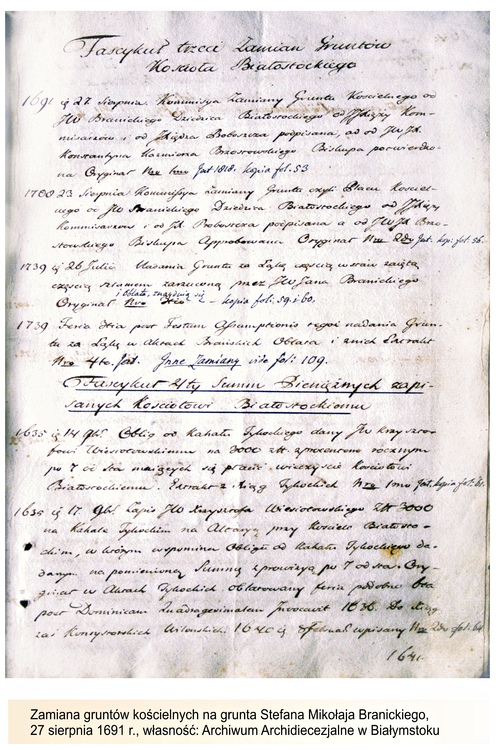 Fascykuł trzeci Zamian Gruntów
Kościoła Białostockiego
1691 iż 27 Sierpnia Kommissya Zamiany Gruntu Kościelnego od
JW Branickiego Dziedzica Białostockiego od JXięży Kom-
missarzów i od Xiędza Proboszcza podpisana, a od JWJX
Konstantyna Kazimierza Brzostowskiego Biskupa potwierdzo-
na Oryginał Nro kopia fol. 53
1700 23 Sierpnia Kommissya Zamiany Gruntu czyli Placu Kościel-
nego od JW Branickiego Dziedzica Białostockiego od JXięży
Kommissarzów i od JX Proboszcza podpisana a od JWJX Brzo-
stowskiego Biskupa Approbowana Oryginał Nro 2do fol. 56.
1739 26 Julii Nadania Gruntu za Łąkę częścią w staw zajętą
częścią szlamem zarzuconą przez JW Jana Branickiego
i oblata, znajdują się
Oryginał Nro 3tio kopia fol: 59. i 60.
1739 Feria 3tia post Festum Assumptionis tegoż nadania Grun-
tu za Łąkę w Aktach Brańskich Oblata i z nich Extrakt
Nro 4to. Inne Zamiany vide fol: 109.
Fascykuł 4ty Summ Pieniężnych zapi-
sanych Kościołowi Białostockiemu
1635 14 Oblig od Kahału Tykockiego dany JW Krzyszto-
fowi Wiesiołowskiemu na 3000 zł. z procentem rocznym
po 7 od sta mających się płacić wieczyście Kościołowi
Białostockiemu. Extrakt z Xiąg Tykockich Nro 1mo kopia fol: 61.
1635 17 Zapis JW Krzysztofa Wiesiołowskiego Zł 3000
na Kahale Tykockim na Altaryą przy Kościele Białosto-
ckim, w którym wspomina Obligu od Kahału Tykockiego da-
danym na pomienioną Summę z prowizyą po 7 od sta. Ory-
ginał w Aktach Tykockich oblatowany feria 6ta
post Dominicam Quadragesimalem 1636 Do Xiąg
zaś Konsystorskich Wileńskich 1640 wpisany Nro 2do fol: 64
1641.
Zamiana gruntów kościelnych na grunta Stefana Mikołaja Branickiego,
27 sierpnia 1691 r., własność: Archiwum Archidiecezjalne w Białymstoku